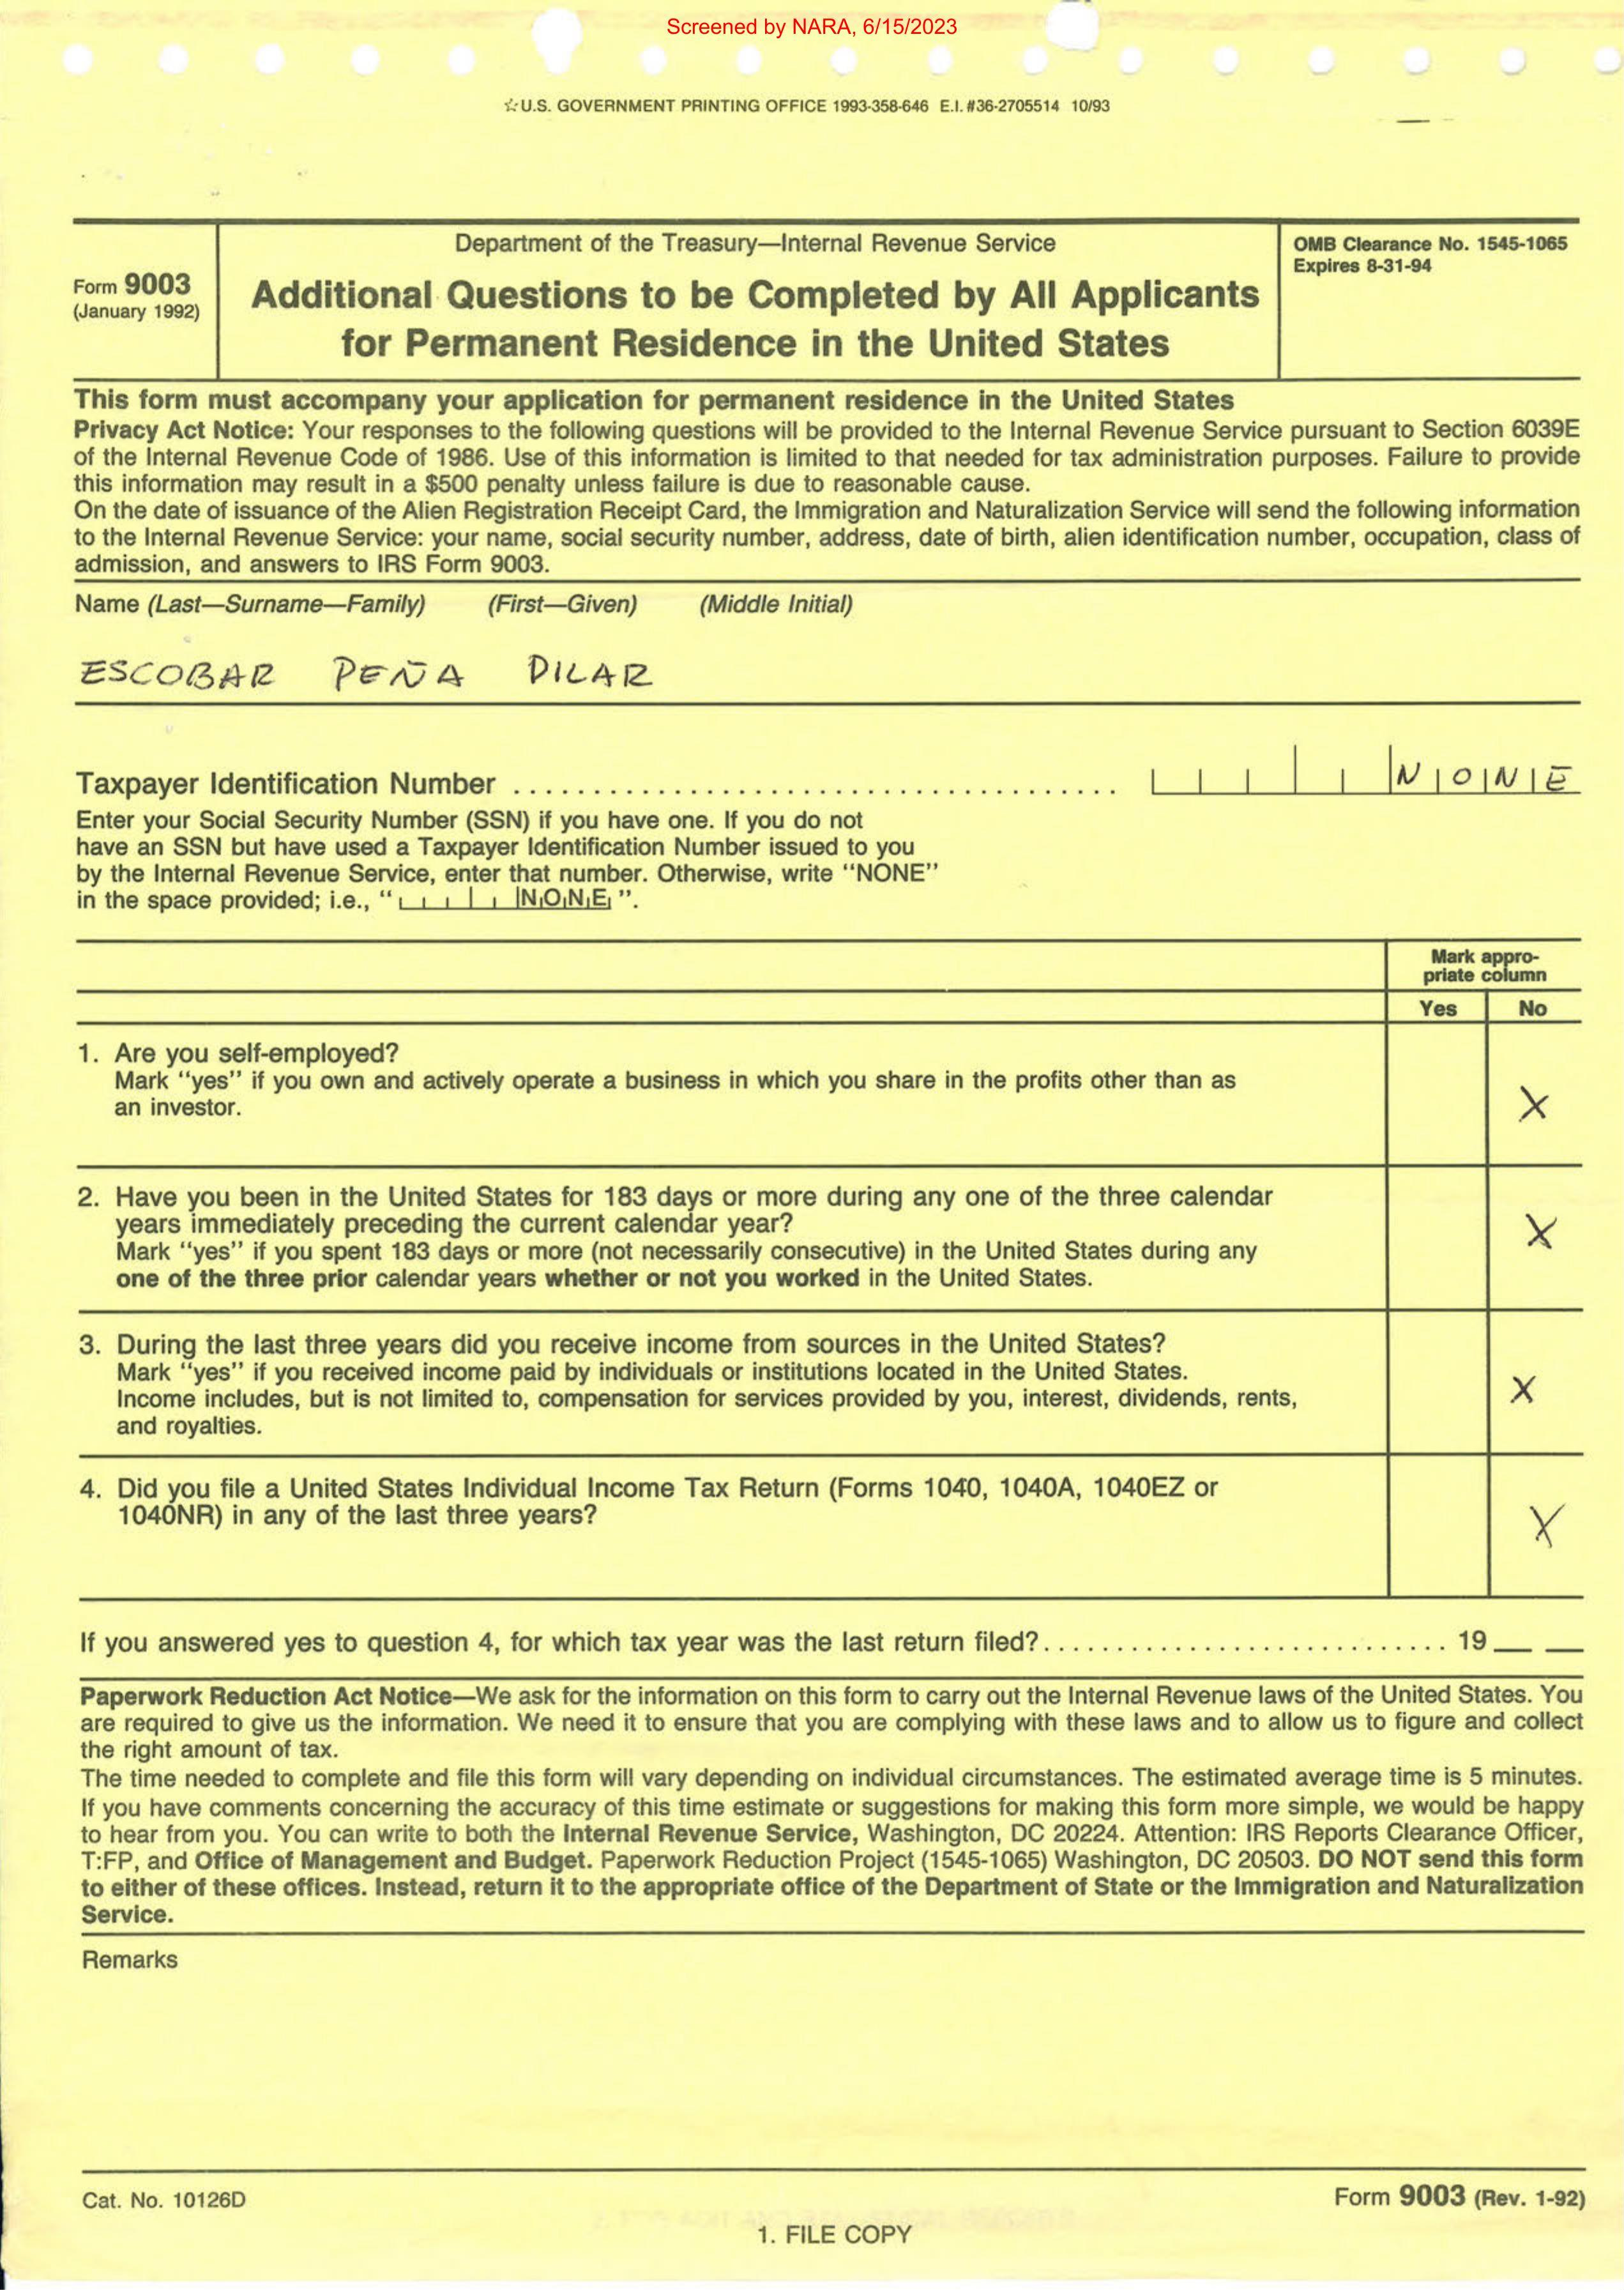 Screened by NARA, 6/15/2023
☆U.S. GOVERNMENT PRINTING OFFICE 1993-358-646 E.I. #36-2705514 10/93
Form 9003
(January 1992)
Department of the Treasury—Internal Revenue Service
Additional Questions to be Completed by All Applicants
for Permanent Residence in the United States
OMB Clearance No. 1545-1065
Expires 8-31-94
This form must accompany your application for permanent residence in the United States
Privacy Act Notice: Your responses to the following questions will be provided to the Internal Revenue Service pursuant to Section 6039E
of the Internal Revenue Code of 1986. Use of this information is limited to that needed for tax administration purposes. Failure to provide
this information may result in a $500 penalty unless failure is due to reasonable cause.
On the date of issuance of the Alien Registration Receipt Card, the Immigration and Naturalization Service will send the following information
to the Internal Revenue Service: your name, social security number, address, date of birth, alien identification number, occupation, class of
admission, and answers to IRS Form 9003.
Name (Last—Surname—Family) (First—Given) (Middle Initial)
ESCOBAR PEÑA PILAR
Taxpayer Identification Number ...................................... NONE
Enter your Social Security Number (SSN) if you have one. If you do not
have an SSN but have used a Taxpayer Identification Number issued to you
by the Internal Revenue Service, enter that number. Otherwise, write "NONE"
in the space provided; i.e., " NONE ".
Mark appro-
priate column
Yes No
1. Are you self-employed?
Mark "yes" if you own and actively operate a business in which you share in the profits other than as
an investor.
X
2. Have you been in the United States for 183 days or more during any one of the three calendar
years immediately preceding the current calendar year?
Mark "yes" if you spent 183 days or more (not necessarily consecutive) in the United States during any
one of the three prior calendar years whether or not you worked in the United States.
X
3. During the last three years did you receive income from sources in the United States?
Mark "yes" if you received income paid by individuals or institutions located in the United States.
Income includes, but is not limited to, compensation for services provided by you, interest, dividends, rents,
and royalties.
X
4. Did you file a United States Individual Income Tax Return (Forms 1040, 1040A, 1040EZ or
1040NR) in any of the last three years?
X
If you answered yes to question 4, for which tax year was the last return filed?.......................... 19__ __
Paperwork Reduction Act Notice—We ask for the information on this form to carry out the Internal Revenue laws of the United States. You
are required to give us the information. We need it to ensure that you are complying with these laws and to allow us to figure and collect
the right amount of tax.
The time needed to complete and file this form will vary depending on individual circumstances. The estimated average time is 5 minutes.
If you have comments concerning the accuracy of this time estimate or suggestions for making this form more simple, we would be happy
to hear from you. You can write to both the Internal Revenue Service, Washington, DC 20224. Attention: IRS Reports Clearance Officer,
T:FP, and Office of Management and Budget. Paperwork Reduction Project (1545-1065) Washington, DC 20503. DO NOT send this form
to either of these offices. Instead, return it to the appropriate office of the Department of State or the Immigration and Naturalization
Service.
Remarks
Cat. No. 10126D
Form 9003 (Rev. 1-92)
1. FILE COPY